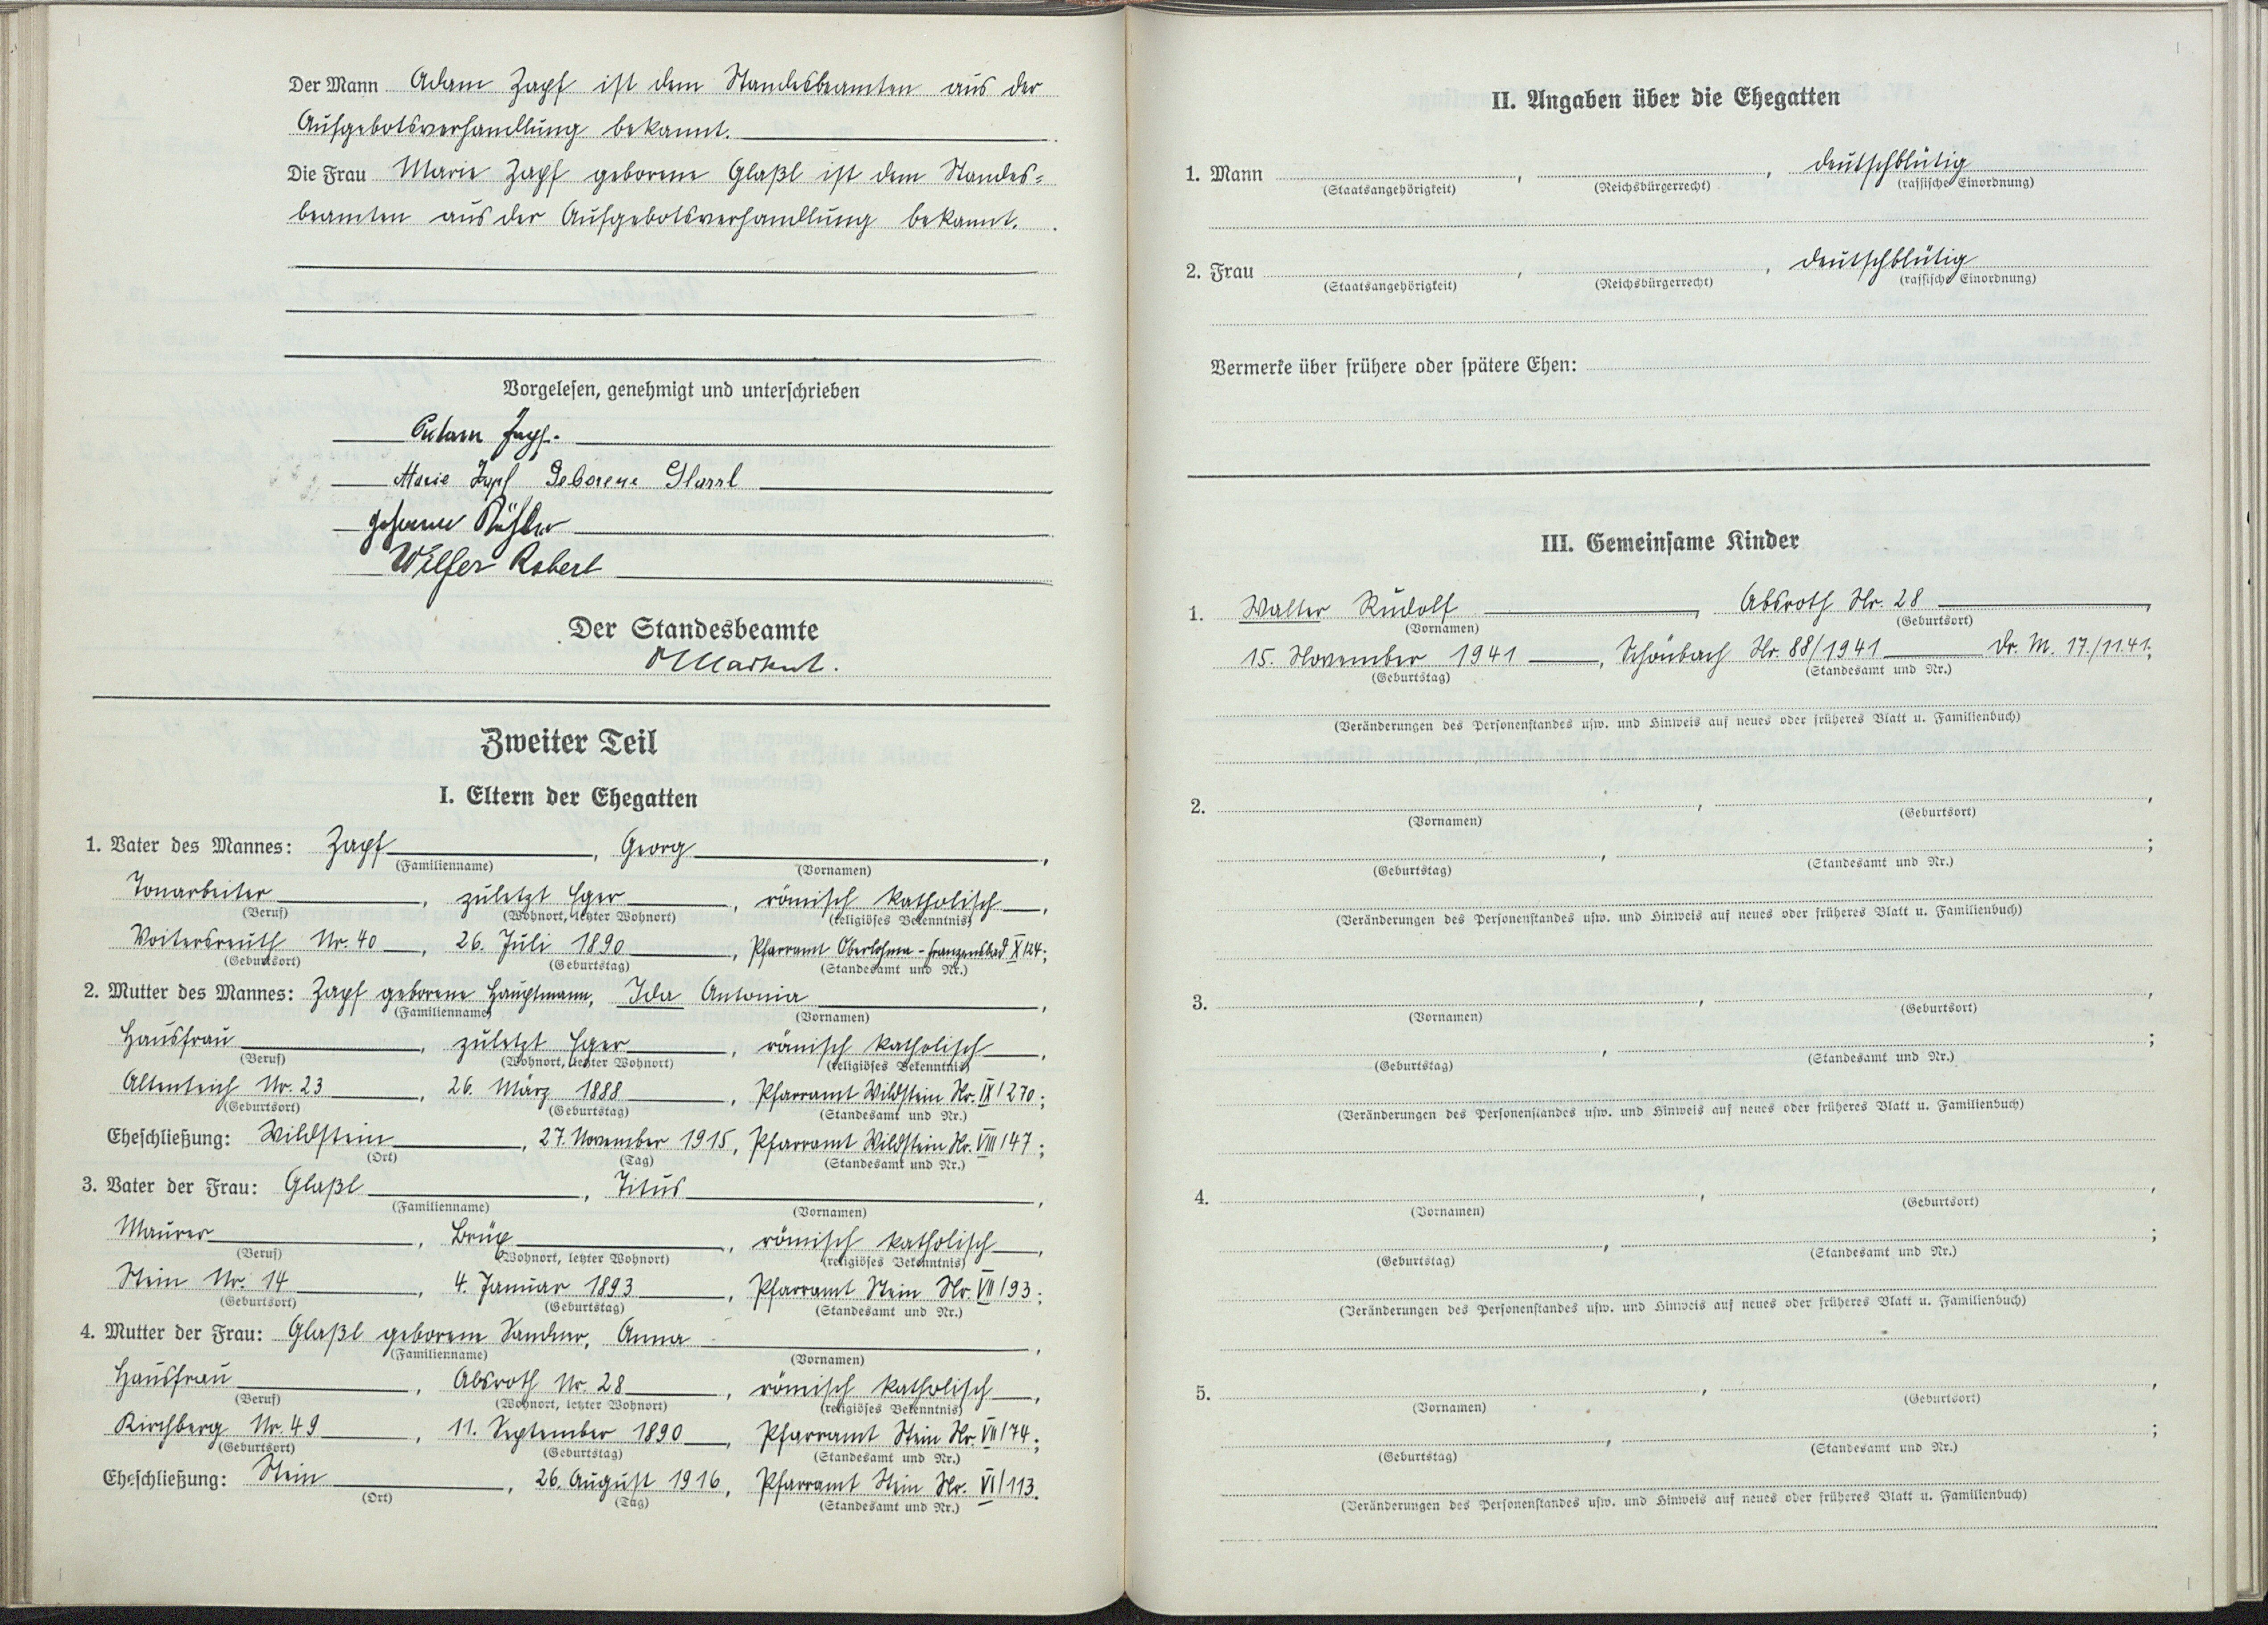 Der Mann Adam Zapf ist dem Standesbeamten aus der
Aufgebotsverhandlung bekannt.
Die Frau Marie Zapf geborene Glaßl ist dem Standes=
beamten aus der Aufgebotsverhandlung bekannt.
Vorgelesen, genehmigt und unterschrieben
Adam Zapf.
Marie Zapf Geborene Glassl
Wilfer Robert
Der Standesbeamte
Zweiter Teil
I. Eltern der Ehegatten
1. Vater des Mannes: Zapf, Georg,
(Familienname) (Vornamen)
Tonarbeiter, zuletzt Eger, römisch katholisch,
(Beruf) (Wohnort, letzter Wohnort) (religiöses Bekenntnis)
Voitersreuth Nr. 40, 26. Juli 1890, Pfarramt Oberlohma-Franzensbad X/124;
(Geburtsort) (Geburtstag) (Standesamt und Nr.)
2. Mutter des Mannes: Zapf geborene Hauptmann, Ida Antonia,
(Familienname) (Vornamen)
Hausfrau, zuletzt Eger, römisch katholisch,
(Beruf) (Wohnort, letzter Wohnort) (religiöses Bekenntnis)
Altenteich Nr. 23, 26. März 1888, Pfarramt Wildstein Nr. IX/270;
(Geburtsort) (Geburtstag) (Standesamt und Nr.)
Eheschließung: Wildstein, 27. November 1915, Pfarramt Wildstein Nr. VIII/47;
(Ort) (Tag) (Standesamt und Nr.)
3. Vater der Frau: Glaßl, Titus,
(Familienname) (Vornamen)
Maurer, Brüx, römisch katholisch,
(Beruf) (Wohnort, letzter Wohnort) (religiöses Bekenntnis)
Stein Nr. 14, 4. Januar 1893, Pfarramt Stein Nr. VII/93;
(Geburtsort) (Geburtstag) (Standesamt und Nr.)
4. Mutter der Frau: Glaßl geborene Sandner, Anna,
(Familienname) (Vornamen)
Hausfrau, Absroth Nr. 28, römisch katholisch,
(Beruf) (Wohnort, letzter Wohnort) (religiöses Bekenntnis)
Kirchberg Nr. 49, 11. September 1890, Pfarramt Stein Nr. VII/74;
(Geburtsort) (Geburtstag) (Standesamt und Nr.)
Eheschließung: Stein, 26. August 1916, Pfarramt Stein Nr. VI/113.
(Ort) (Tag) (Standesamt und Nr.)
II. Angaben über die Ehegatten
1. Mann , , deutschblütig
(Staatsangehörigkeit) (Reichsbürgerrecht) (rassische Einordnung)
2. Frau , , deutschblütig
(Staatsangehörigkeit) (Reichsbürgerrecht) (rassische Einordnung)
Vermerke über frühere oder spätere Ehen:
III. Gemeinsame Kinder
1. Walter Rudolf, Absroth Nr. 28,
(Vornamen) (Geburtsort)
15. November 1941, Schönbach Nr. 88/1941 Dr. M. 17./11.41.;
(Geburtstag) (Standesamt und Nr.)
(Veränderungen des Personenstandes usw. und Hinweis auf neues oder früheres Blatt u. Familienbuch)
2. , ,
(Vornamen) (Geburtsort)
, ;
(Geburtstag) (Standesamt und Nr.)
(Veränderungen des Personenstandes usw. und Hinweis auf neues oder früheres Blatt u. Familienbuch)
3. , ,
(Vornamen) (Geburtsort)
, ;
(Geburtstag) (Standesamt und Nr.)
(Veränderungen des Personenstandes usw. und Hinweis auf neues oder früheres Blatt u. Familienbuch)
4. , ,
(Vornamen) (Geburtsort)
, ;
(Geburtstag) (Standesamt und Nr.)
(Veränderungen des Personenstandes usw. und Hinweis auf neues oder früheres Blatt u. Familienbuch)
5. , ,
(Vornamen) (Geburtsort)
, ;
(Geburtstag) (Standesamt und Nr.)
(Veränderungen des Personenstandes usw. und Hinweis auf neues oder früheres Blatt u. Familienbuch)